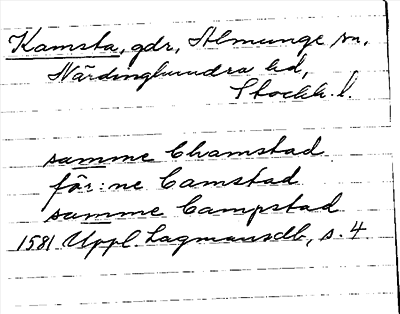 Kamsta, gdr, Almunge sn,
Närdinghundra hd,
Stockh. l.
samme Chamstad
för:ne Camstad
samme Campstad
1581 Uppl. Lagmansdb, s. 4